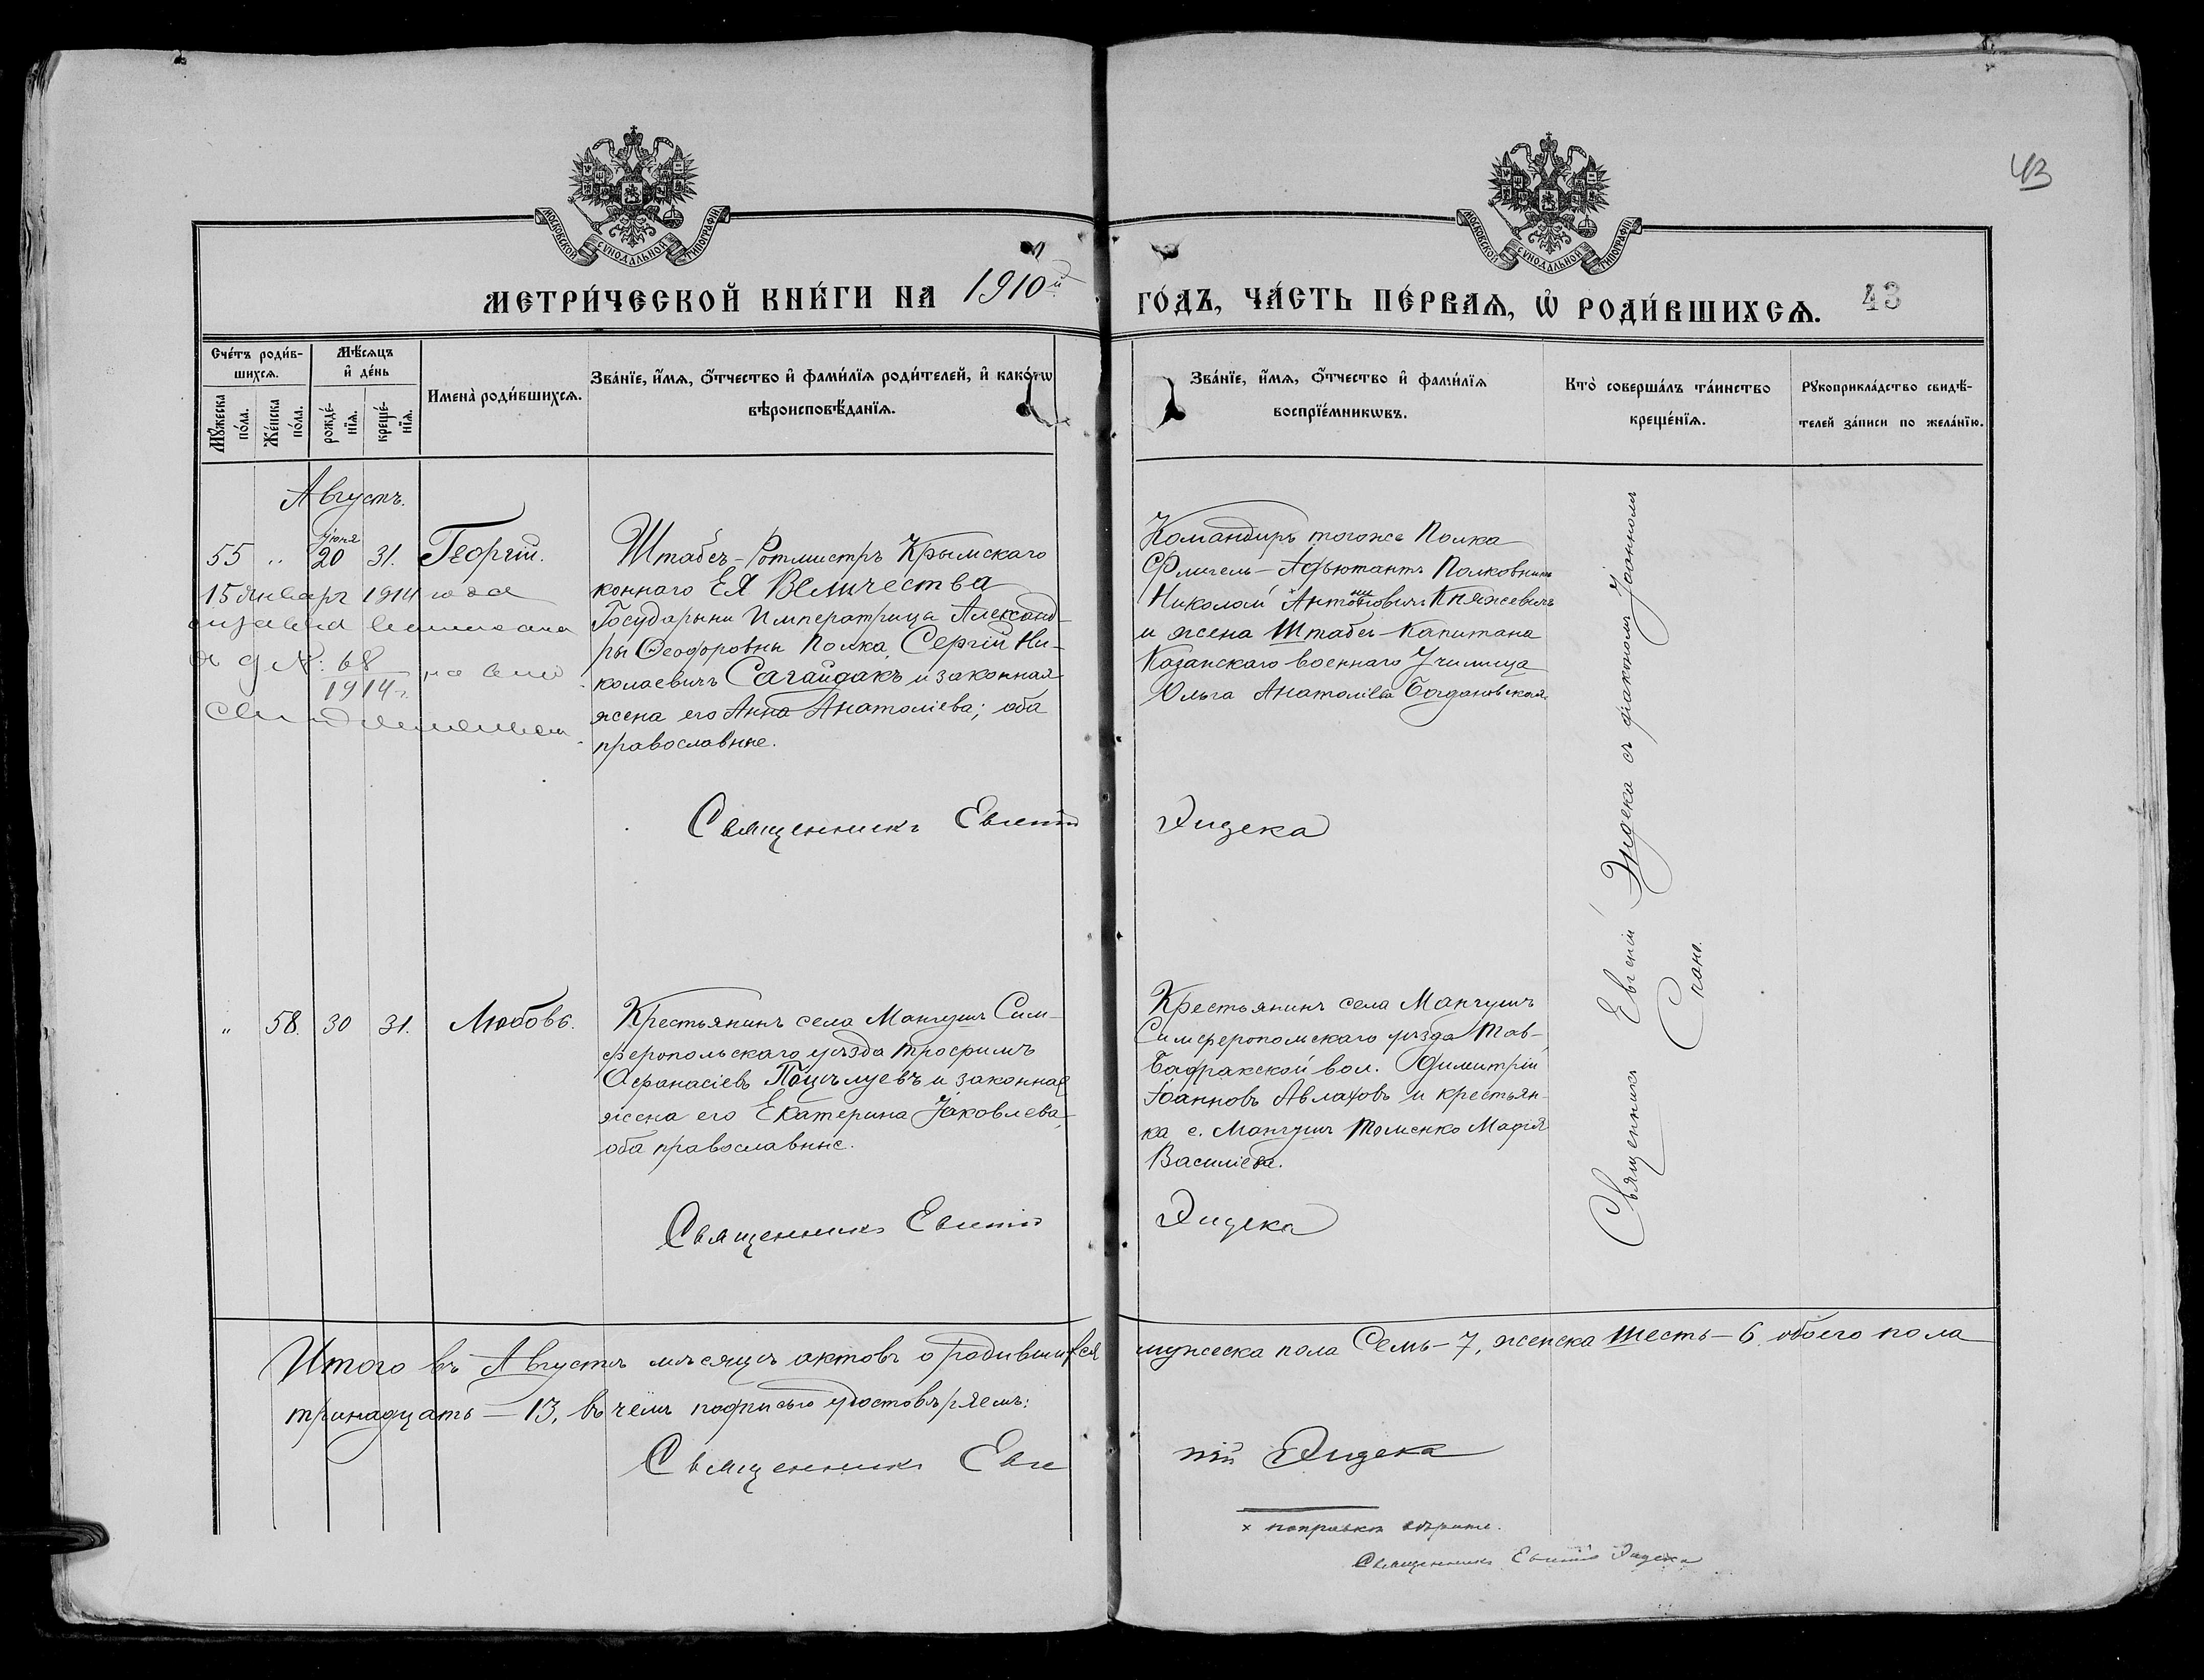 43
МОСКОВСКОЙ СѴНОДАЛЬНОЙ ТИПОГРАФІИ
МОСКОВСКОЙ СѴНОДАЛЬНОЙ ТИПОГРАФІИ
МЕТРИ́ЧЕСКОЙ КНИ́ГИ НА 1910й
ГО́ДЪ, ЧА́СТЬ ПЕ́РВАѦ, Ѽ РОДИ́ВШИХСѦ. 43
Сче́тъ роди́в-
шихсѧ.
Мꙋ́жеска по́ла.
Же́нска по́ла.
Мѣ́сѧцъ
и҆ де́нь
рожде́-
нїѧ.
креще́-
нїѧ.
Имена̀ роди́вшихсѧ.
Зва́нїе, и҆́мѧ, ѻ҆́тчество и҆ фами́лїѧ роди́телей, и҆ како́гѡ
вѣроисповѣ́данїѧ.
Зва́нїе, и҆́мѧ, ѻ҆́тчество и҆ фами́лїѧ
воспрїе́мникѡвъ.
Кто̀ соверша́лъ та́инство
креще́нїѧ.
Рꙋкоприкла́дство свидѣ́-
телей за́писи по жела́нїю.
Августъ.
55 " Іюня 20 31. Георгій.
15 Января 1914 года
68
1914 г.
Штабсъ-Ротмистръ Крымскаго
коннаго ЕЯ ВЕличества
Государыни Императрицы Александ-
ры Ѳеодоровны Полка, Сергій Ни-
колаевичъ Сагайдакъ и законная
жена его Анна Анатоліева; оба
православные.
Командиръ тогоже Полка
Флигель-Адъютантъ Полковникъ
Николай Антониновичъ Княжевичъ
и жена Штабсъ-Капитана
Казанскаго военнаго Училища
Ольга Анатоліева Богдановская.
Священникъ Евгеній Эндека
Священникъ Евгеній Эндека съ діакономъ Іоанномъ
Спано.
" 58. 30 31. Любовь.
Крестьянинъ села Мангушъ Сим-
феропольскаго уѣзда Трофимъ
Аѳанасіевъ Поцѣлуевъ и законная
жена его Екатерина Іаковлева,
оба православные.
Крестьянинъ села Мангушъ
Симферопольскаго уѣзда Тав-
Бадракской вол. Димитрій
Іоанновъ Авлаховъ и крестьян-
ка с. Мангушъ Томенко Марія
Василіева.
Священникъ Евгеній Эндека
Итого въ Августѣ мѣсяцѣ актовъ о родившихся мужеска пола Семь-7, женска шесть-6 обоего пола
тринадцать-13, въ чемъ подписью удостовѣряемъ:
Священникъ Евгеній Эндека
× поправки вѣрны.
Священникъ Евгеній Эндека